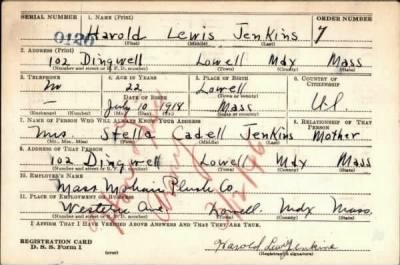 SERIAL NUMBER 1. NAME (Print) ORDER NUMBER
0120 Harold Lewis Jenkins 7
(First) (Middle) (Last)
2. ADDRESS (Print)
102 Dingwell Lowell Mdx Mass
(Number and street or R. F. D. number) (Town) (County) (State)
3. TELEPHONE 4. AGE IN YEARS 5. PLACE OF BIRTH 6. COUNTRY OF CITIZENSHIP
no 22 Lowell
DATE OF BIRTH (Town or county)
— July 10 1918 Mass
(Mo.) (Day) (Yr.) (State or country)
7. NAME OF PERSON WHO WILL ALWAYS KNOW YOUR ADDRESS 8. RELATIONSHIP OF THAT PERSON
Mrs. Stella Cadell Jenkins Mother
(Mr., Mrs., Miss) (First) (Middle) (Last)
9. ADDRESS OF THAT PERSON
102 Dingwell Lowell Mdx Mass
(Number and street or R. F. D. number) (Town) (County) (State)
10. EMPLOYER'S NAME
Mass Mohair Plush Co.
11. PLACE OF EMPLOYMENT OR BUSINESS
Western Ave. Lowell Mdx Mass.
(Number and street or R. F. D. number) (Town) (County) (State)
I AFFIRM THAT I HAVE VERIFIED ABOVE ANSWERS AND THAT THEY ARE TRUE.
REGISTRATION CARD
D. S. S. Form 1 (over) Harold Lewis Jenkins
(Registrant's signature)